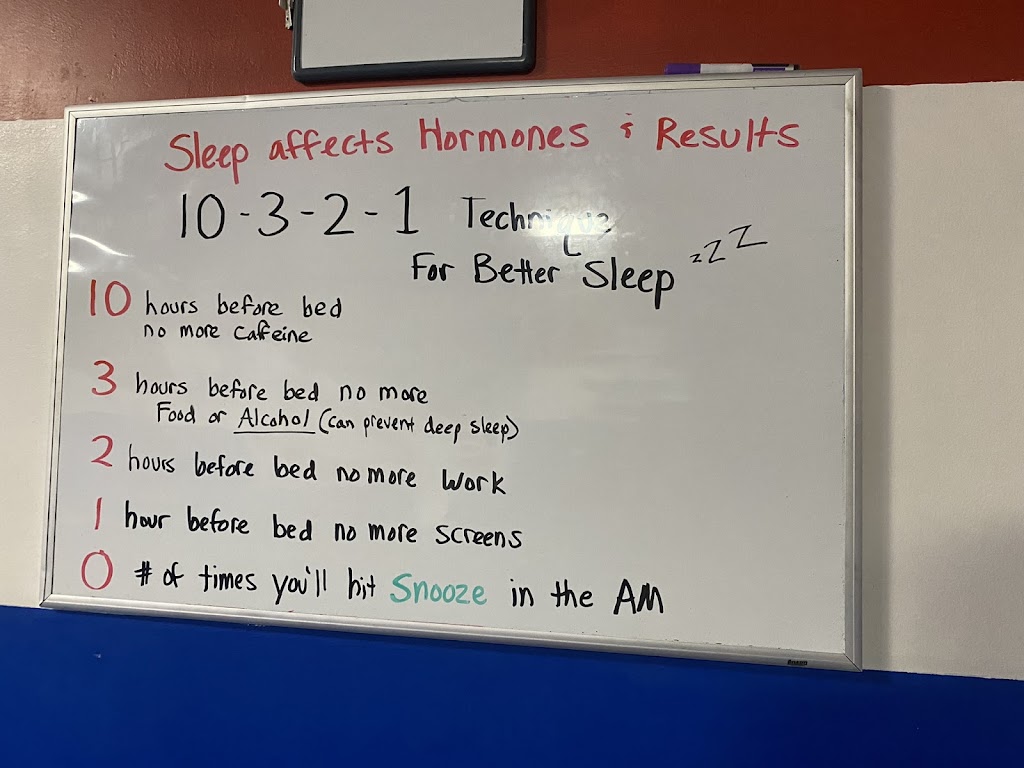 Sleep affects Hormones & Results
10-3-2-1 Technique
For Better Sleep zZZ
10 hours before bed
no more caffeine
3 hours before bed no more
Food or Alcohol (can prevent deep sleep)
2 hours before bed no more work
1 hour before bed no more screens
0 # of times you'll hit Snooze in the AM